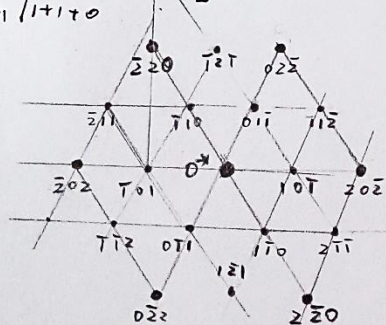 1/1+1+0
2̄20 1̄21̄ 022̄
2̄11 1̄10 011̄ 112̄
2̄02 1̄01 0 101̄ 202̄
1̄1̄2 01̄1 11̄0 21̄1̄
02̄2 12̄1 22̄0